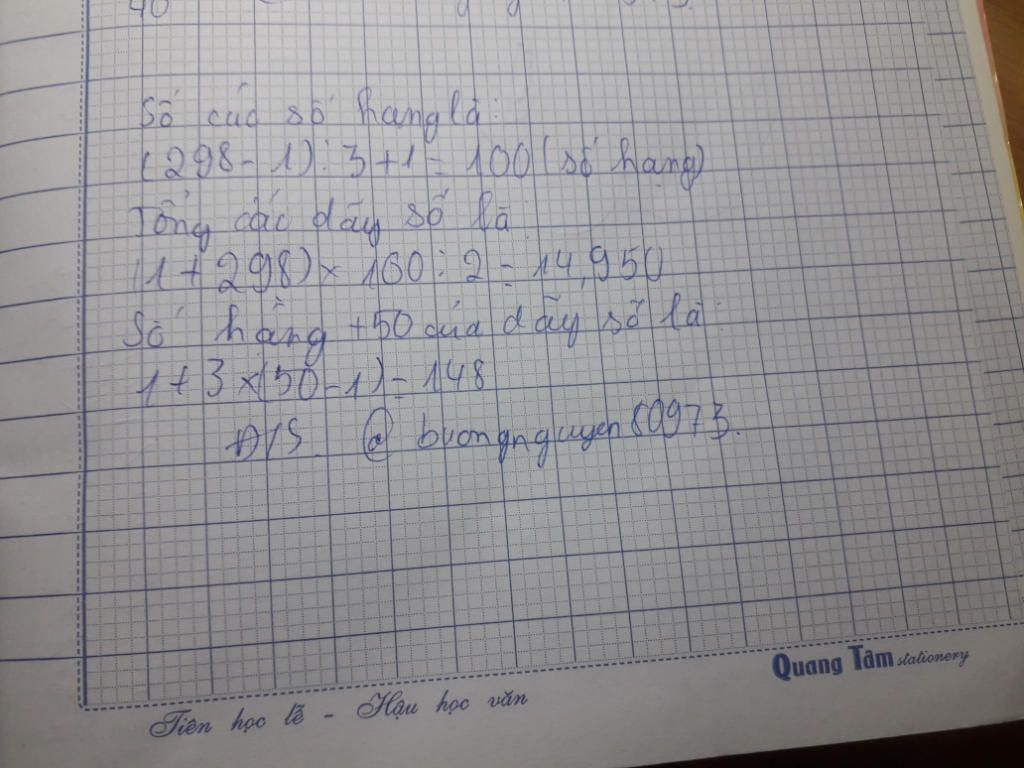 40
Số các số hang là:
(298-1):3+1=100(số hạng)
Tổng các dãy số là
(1+298)×100:2=14,950
Số hằng +50 của dãy số là:
1+3×(50-1)=148
Đ/S. @ buongnguyen60973.
Quang Tâm stationery
Tiên học lễ - Hậu học văn